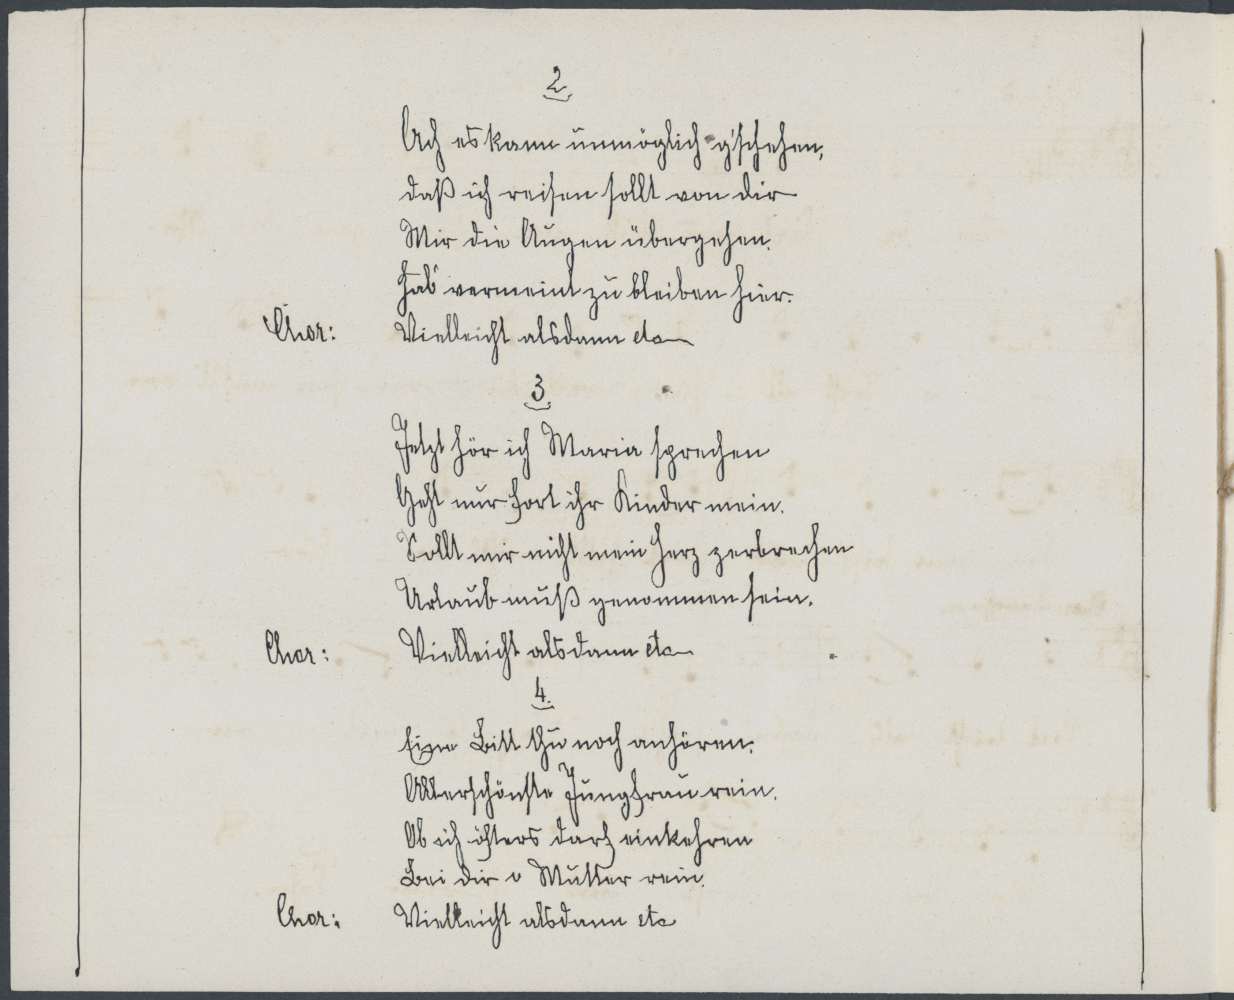 2.
Ach es kann unmöglich g'schehen,
daß ich reisen sollt von dir
Mir die Augen übergehen.
Hab' vermeint zu bleiben hier.
Chor: Vielleicht alsdann etc
3.
Jetzt hör ich Maria sprechen
Geht nur fort ihr Kinder mein.
Sollt mir nicht mein Herz zerbrechen
Urlaub muß genommen sein.
Chor: Vielleicht alsdann etc
4.
Eine Bitt thu noch anhören.
Allerschönste Jungfrau rein.
Ob ich öfters darf einkehren
Bei dir o Mutter rein.
Chor: Vielleicht alsdann etc